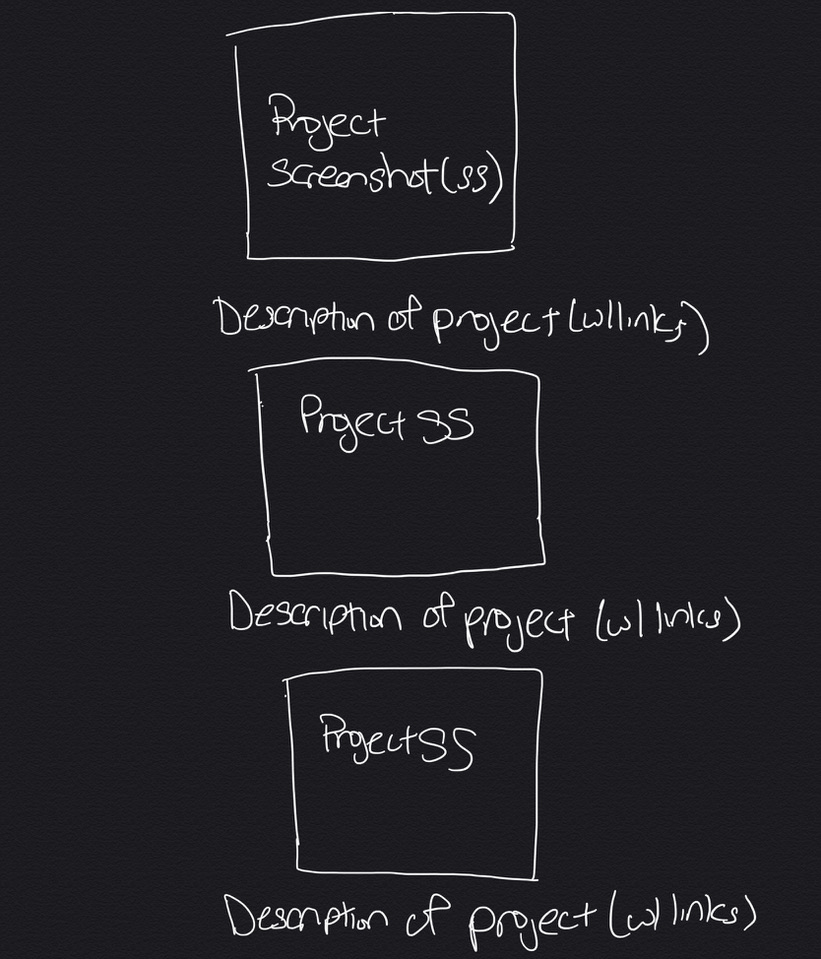 Project
Screenshot (ss)
Description of project (w/links)
Project SS
Description of project (w/ links)
Project SS
Description of project (w/ links)